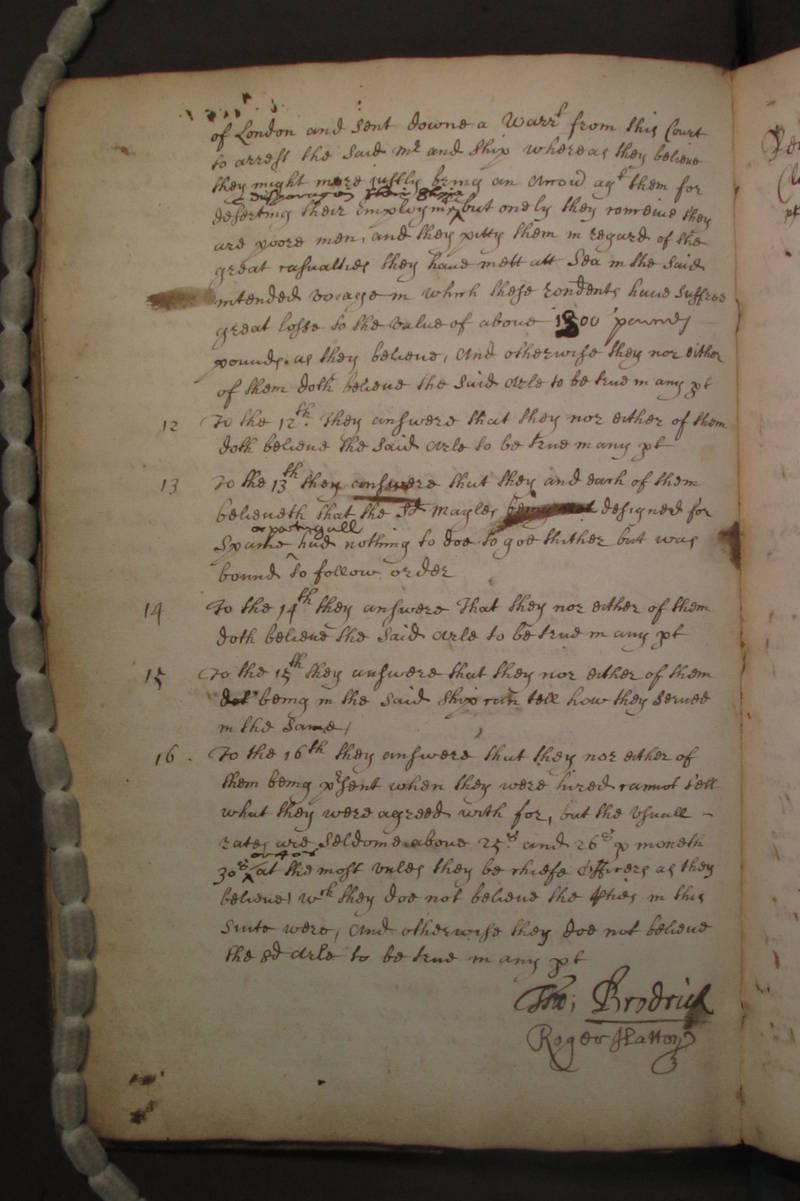 of London and sent downe a Warr.t from this Court
to arrest the said Mr and Ship whereas they believe
they might more justly bring an accon ag.t them for
deserting their employm.t but onely they conceive they
are poore men, and they pitty them in regard of the
great casualties they have mett att Sea in the said
intended voiage in which these rondents have suffred
great losse to the value of above 1800 pounds
pounds. as they believe, And otherwise they nor either
of them doth believe the said arle to be true in any pt
12 To the 12th. They answere that they nor either of them
doth believe the said arle to be true in any pt
13 To the 13th they answere that they and each of them
believeth that the sd Mayles being not designed for
or portugall
Spaine had nothing to doe to goe thither but was
bound to follow order
14 To the 14th they answere That they nor either of them
doth believe the said arle to be true in any pt
15 To the 15th they answere that they nor either of them
being in the said Ship can tell how they served
in the same,
16. To the 16th they answere that they nor either of
them being pr.sent when they were hired cannot tell
what they were agreed with for, but the usuall
rates are seldome above 25.s and 26s p moneth
or 40s
30s at the most unles they be chiefe officers as they
believe, wch they doe not believe the pties in this
Suite were, And otherwise they doe not believe
the sd arle to be true in any pt
Tho; Brodrick
Roger Hatton